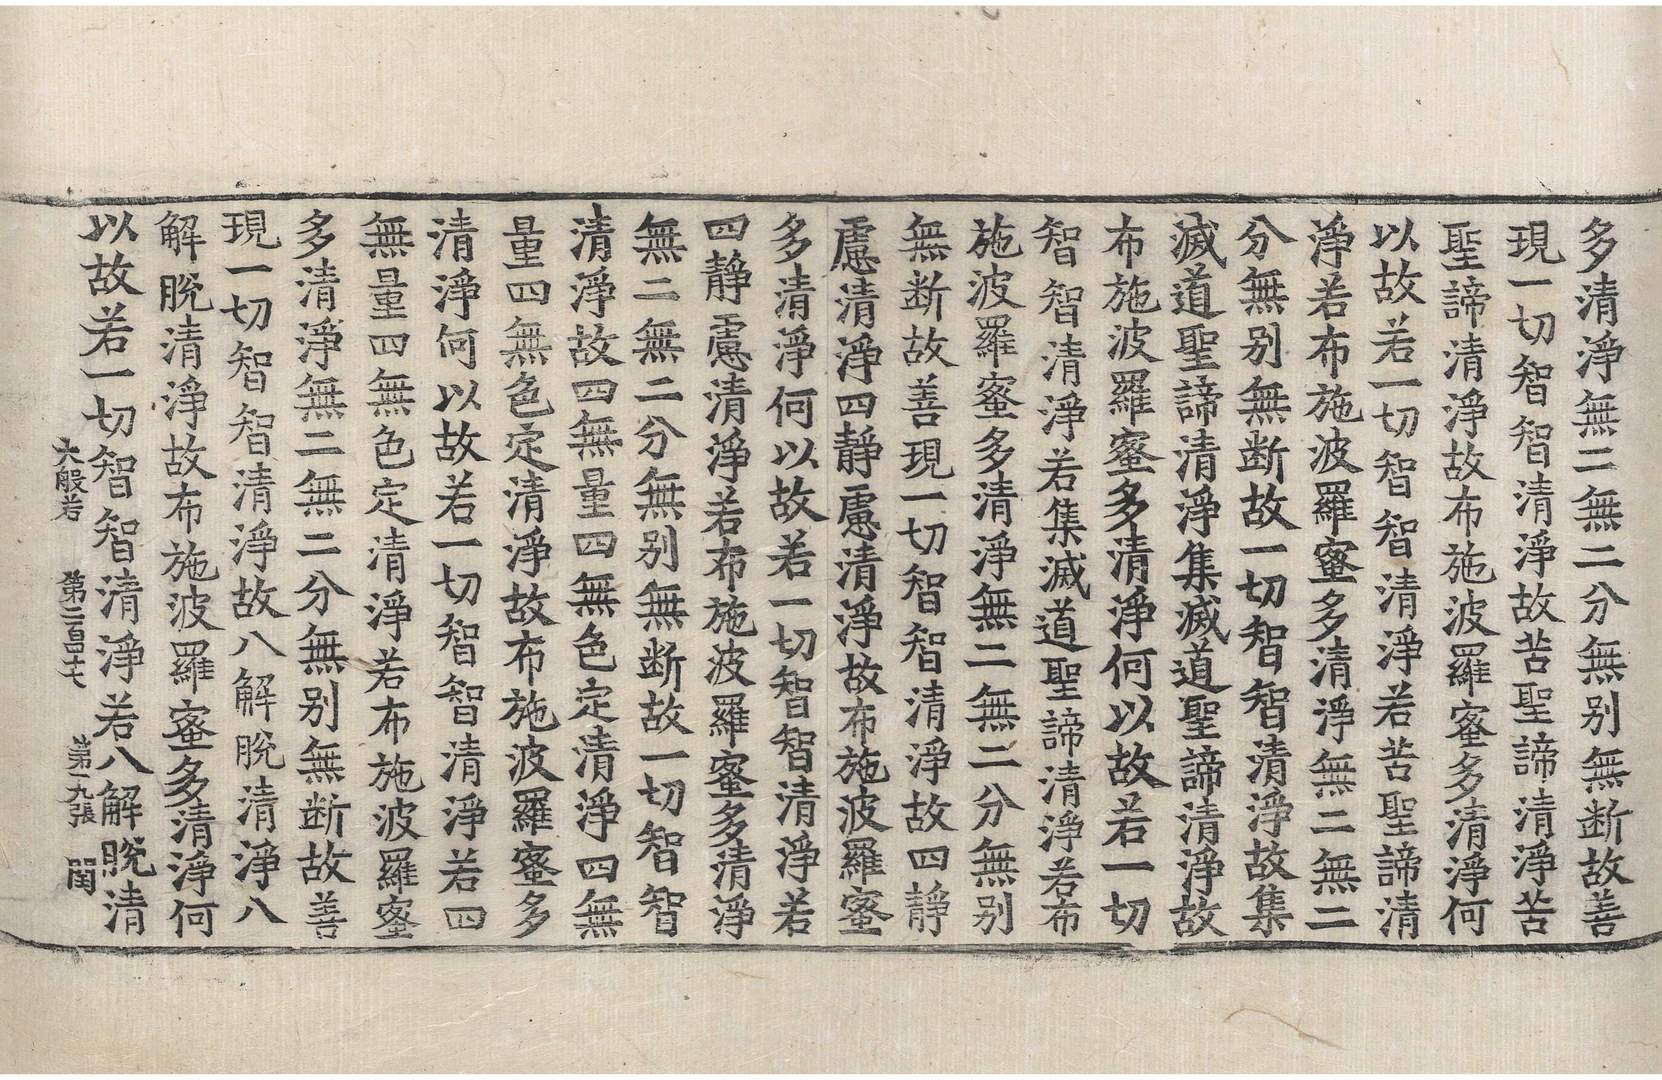 多清淨無二無二分無別無断故善
現一切智智清淨故苦聖諦清淨苦
聖諦清淨故布施波羅蜜多清淨何
以故若一切智智清淨若苦聖諦清
淨若布施波羅蜜多清淨無二無二
分無別無断故一切智智清淨故集
滅道聖諦清淨集滅道聖諦清淨故
布施波羅蜜多清淨何以故若一切
智智清淨若集滅道聖諦清淨若布
施波羅蜜多清淨無二無二分無別
無断故善現一切智智清淨故四靜
慮清淨四靜慮清淨故布施波羅蜜
多清淨何以故若一切智智清淨若
四靜慮清淨若布施波羅蜜多清淨
無二無二分無別無断故一切智智
清淨故四無量四無色定清淨四無
量四無色定清淨故布施波羅蜜多
清淨何以故若一切智智清淨若四
無量四無色定清淨若布施波羅蜜
多清淨無二無二分無別無断故善
現一切智智清淨故八解脫清淨八
解脫清淨故布施波羅蜜多清淨何
以故若一切智智清淨若八解脫清
大般若 第一九張 閏